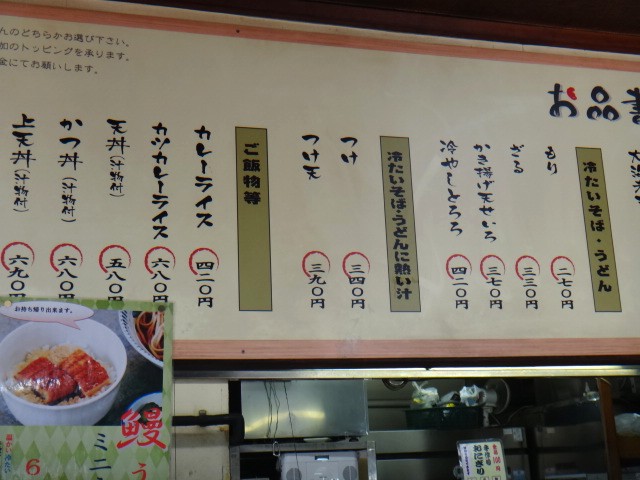 んのどちらかお選び下さい。
加のトッピングを承ります。
金にてお願いします。
お品書
冷たいそば・うどん
もり 二七〇円
ざる 三三〇円
かき揚げ天せいろ 三七〇円
冷やしとろろ 四二〇円
冷たいそば・うどんに熱い汁
つけ 三四〇円
つけ天 三九〇円
ご飯物等
カレーライス 四二〇円
カツカレーライス 六八〇円
天丼(汁物付) 五八〇円
かつ丼(汁物付) 六八〇円
上天丼(汁物付) 六九〇円
お持ち帰り出来ます。
鰻う
ミニ
6
おにぎり